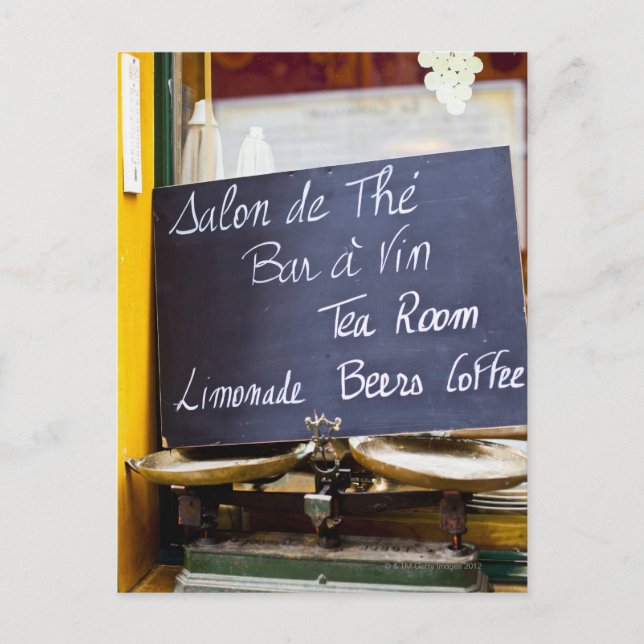 Salon de Thé
Bar à Vin
Tea Room
Limonade Beers Coffee
© & TM Getty Images 2012